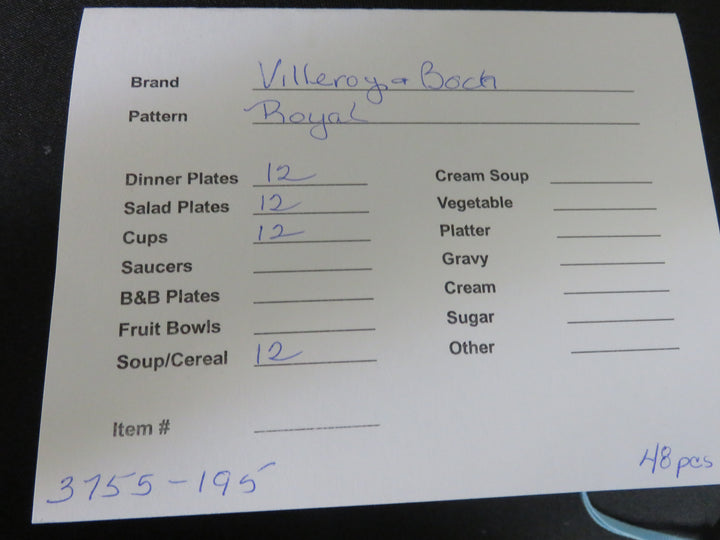 Brand Villeroy & Boch
Pattern Royal
Dinner Plates 12
Salad Plates 12
Cups 12
Saucers
B&B Plates
Fruit Bowls
Soup/Cereal 12
Cream Soup
Vegetable
Platter
Gravy
Cream
Sugar
Other
Item #
3755-195
48 pcs